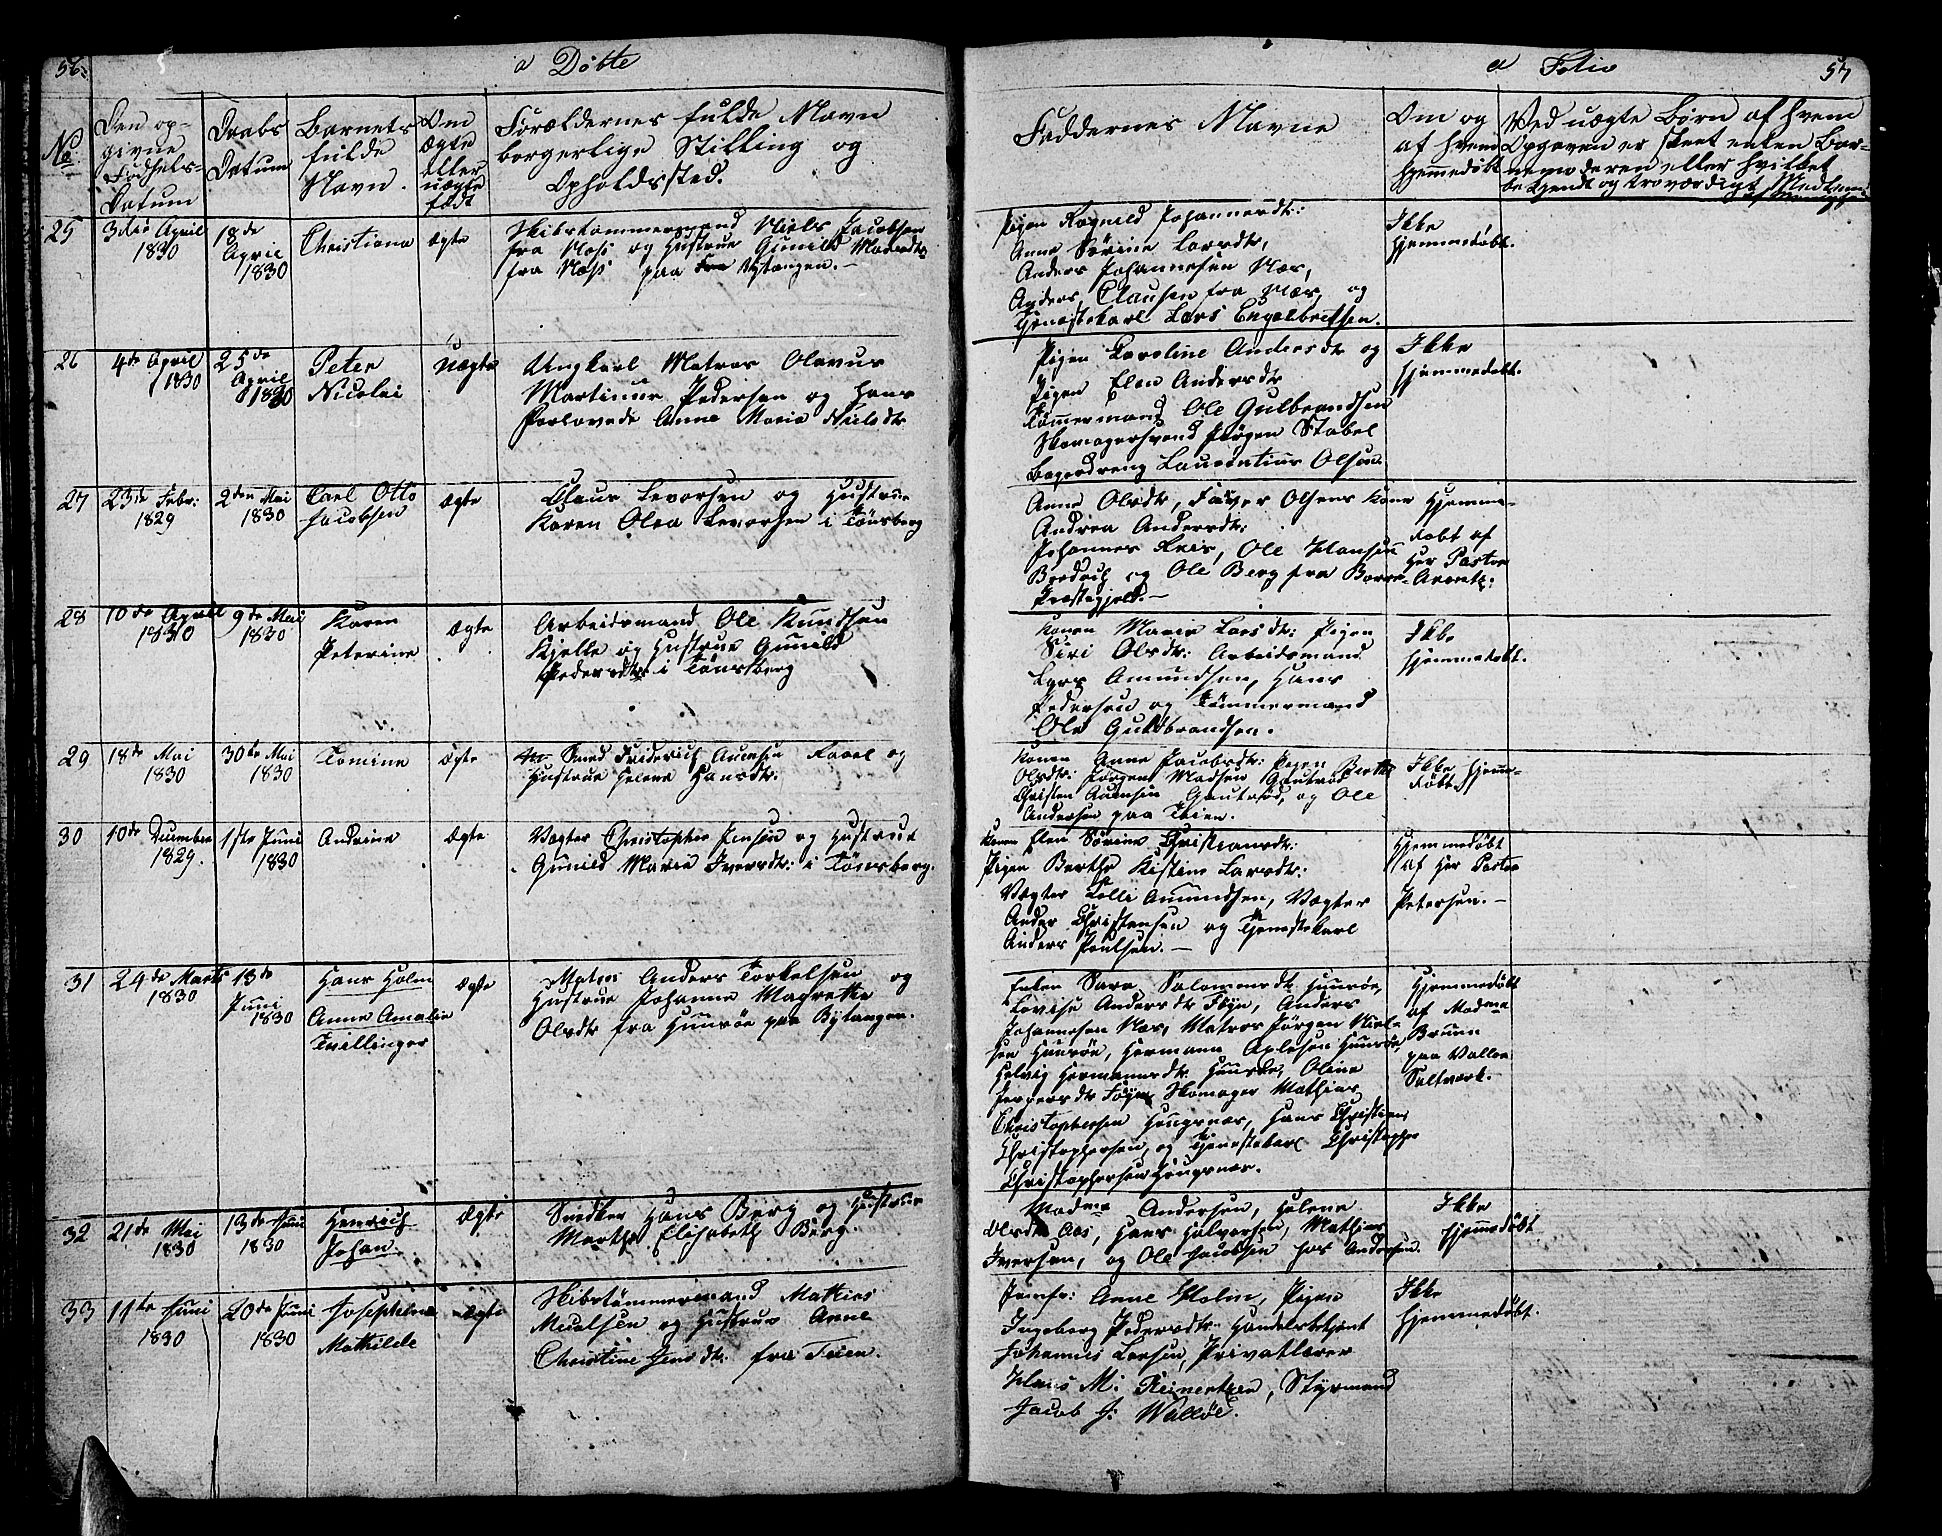 56.
a Döbte
No
Den op-
givne
Födsels-
Datum
Daabs
Datum
Barnets
fulde
Navn.
Om
ægte
eller
uægte
födt
Forældernes fulde Navn
borgerlige Stilling og
Opholdssted.
25
3die April
1830
18de
April
1830
Christiana
ægte
Skibstømmermand Niels Jacobsen
fra Næss og Hustrue Gunild Madsdtr
fra Næss paa Bytangen.
26
4de April
1830
25de
April
1830
Peter
Nicolai
Uægte
Ungkarl Matros Olavus
Martinus Pedersen og Hans
Forlovede Anne Marie Nielsdtr
27
23de Febr:
1829
2den Mai
1830
Carl Otto
Jacobsen
Ægte
Claus Levorsen og Hustrue
Karen Olea Levorsen i Tönsberg
28
10de April
1830
9de Mai
1830
Karen
Peterine
Ægte
Arbeidsmand Ole Knudsen
Kjelle og Hustrue Gunild
Pedersdtr i Tönsberg
29
18de Mai
1830
30te Mai
1830
Tomine
Ægte
Smed Friderich Aamsen og
Hustrue Helene Hansdtr:
30
10de December
1829.
1ste Juni
1830
Andrine
Ægte
Vægter Christopher Jensen og Hustrue
Gunild Marie Iversdtr: i Tönsberg.
31
24de Marts
1830
13de
Juni
1830
Hans Holm
Anne Amalie
Tvillinger
Ægte
Matros Anders Torkelsen og
Hustrue Johanne Magrethe
Olsdtr fra Huusöe paa Bytangen.
32
21de Mai
1830
13de Juni
1830
Henrich
Johan
Ægte
Snedker Hans Berg og Hustrue
Marthe Elisabeth Berg.
33
11te Juni
1830
20de Juni
1830
Josephine
Mathilde
Ægte
Skibstømmermand Mathies
og Hustrue Anne
Christine Jensdtr. fra Teien.
a Folio
57
Faddernes Navne
Om og
af hvem
hjemmedöbt
Ved uægte Börn af hvem
Opgaven er skeet enten Bar-
nemoderen eller hvilket
bekjendt og troværdigt
Pigen Ragnild Johannesdtr:
Anne Sörine Larsdtr,
Anders Johannesen Næs,
Anders Clausen fra Næs, og
Tjenestekarl Lars Engelbretsen.
Ikke
hjemmedöbt.
Pigen Karoline Andersdtr og
Pigen Elen Andersdtr
Tømmermand Ole Gulbrandsen
Skomagersvend Jörgen Stabel
Bagerdreng Laurentius Olsen
Ikke
hjemmedöbt.
Anne Olsdtr, Faver Olsens Kone
Andrea Andersdtr:
Johannes Reis, Ole Hansen
Bredoch og Ole Berg fra Borre
Præstegjeld.
Hjemme-
döbt af
Her Pastor
Arentz.
Konen Marie Larsdtr: Pigen
Siri Olsdtr: Arbeidsmand
Lars Amundsen, Hans
Pedersen og Tömmermand
Ole Guldbrandsen.
Ikke
hjemmedöbt.
Konen Anne Jacobsdtr: Pigen Berthe
Olsdtr: Jörgen Madsen Gauteröd
Christen Aamsen Gauteröd, og Ole
Andersen paa Teien.
Ikke hjemme-
döbt.
Konen Elen Sörine Christiansdtr:
Pigen Berthe Kistine Larsdtr:
Vægter Tolli Amundsen, Vægter
Ander Christensen og Tjenestekarl
Anders Poulsen.
Hjemmedöbt
af Her Pastor
Petersen.
Enken Sara Salomonsdtr Huusöe,
Lovise Andersdtr Foyn, Anders
Johannesen Næs, Matros Jörgen Niel-
sen Huusöe, Hermann Axelsen Huusöe,
Helvig Hermansdtr Huusöe, Oline
Jespersdtr Foyn, Skomager Mathias
Christophersen Haugsnæs, Hans Christian
Christophersen og Tjenestekarl Christopher
Christophersen Haugsnæs.
Hjemmedöbt
af Madme
Bruun
paa Valloe
Saltværk.
Madme Andersen, Helene
Olsdtr Aas, Hans Halvorsen, Mathias
Iversen, og Ole Jacobsen hos Andersen.
Ikke
hjemmedöbt.
Jomfr: Anne Holm, Pigen
Ingeborg Pedersdtr: Handelsbetjent
Johannes Larsen, Privatlærer
Hans M: Reinertsen, Styrmand
Jacob J: Wallöe.
Ikke
hjemmedöbt.